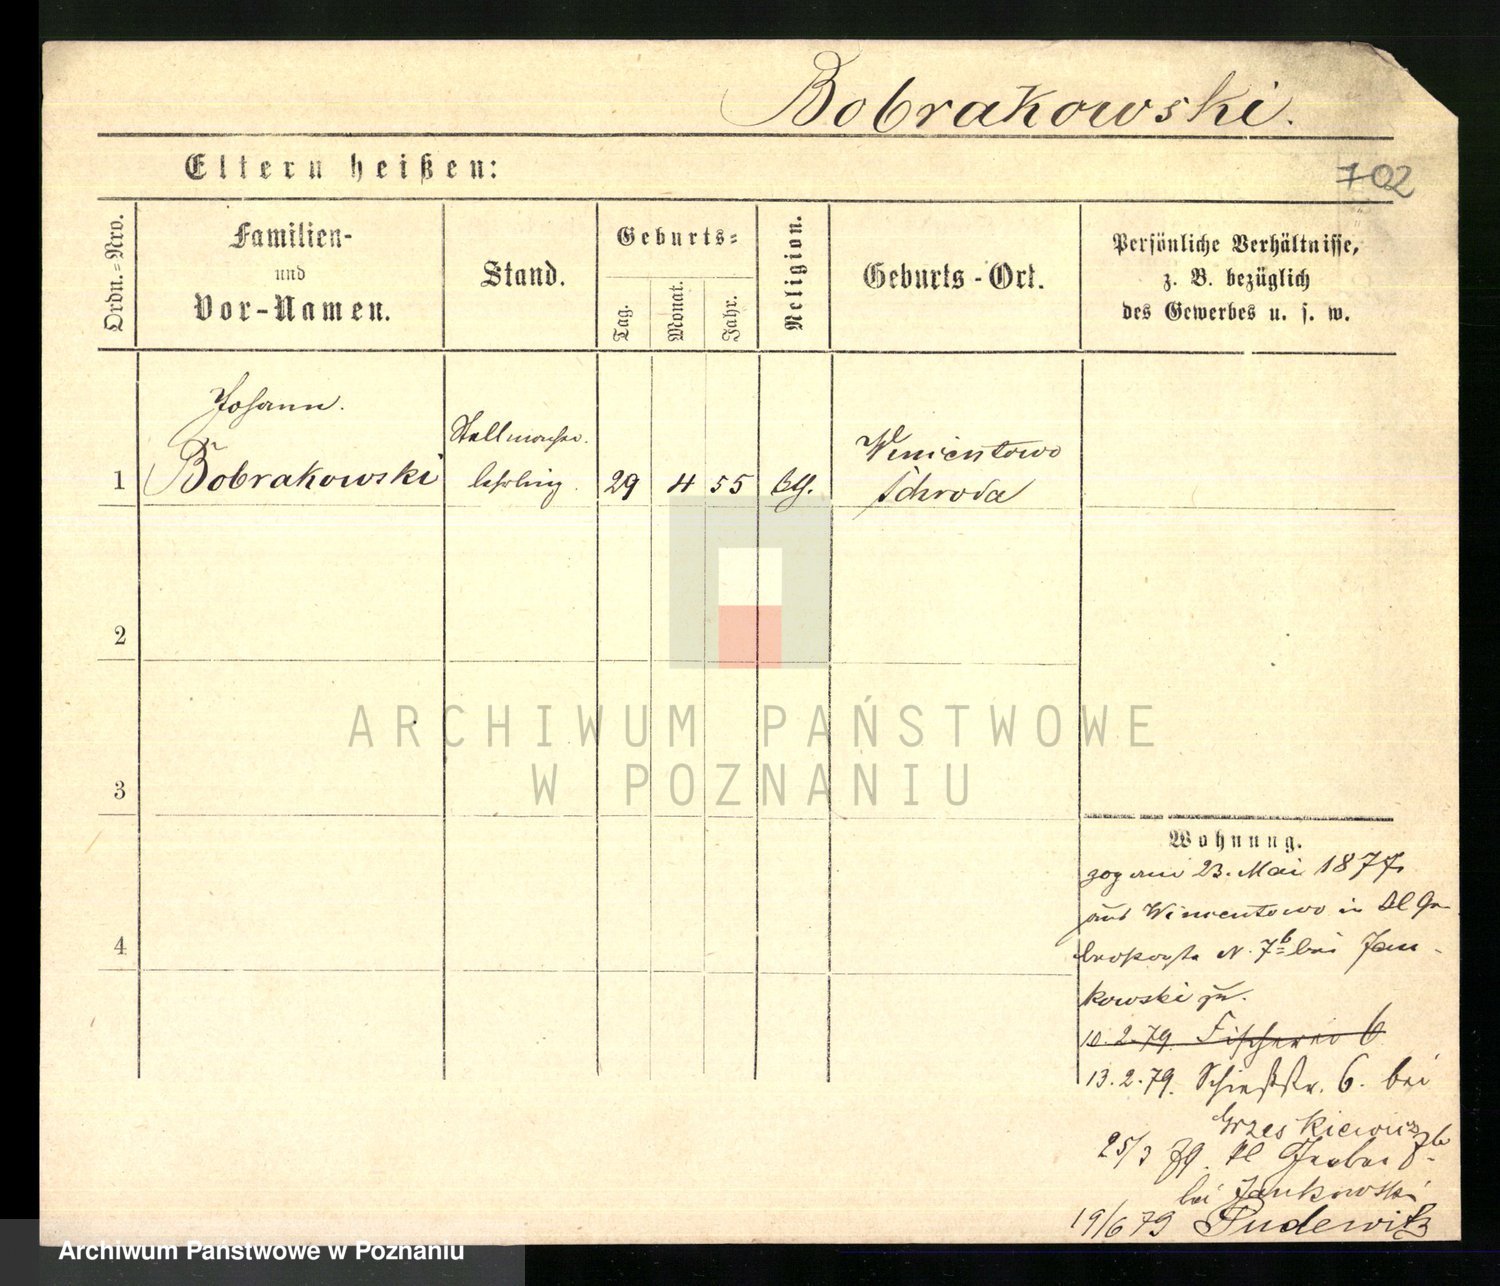 Bobrakowski.
Eltern heißen:
702
Ordn.-Nro.
Familien-
und
Vor-Namen.
Stand.
Geburts-
Tag.
Monat.
Jahr.
Religion.
Geburts-Ort.
Persönliche Verhältnisse,
z. B. bezüglich
des Gewerbes u. s. w.
1
Johann.
Bobrakowski
Stellmacher
lehrling.
29
4
55
kth.
Winientowo
Schroda
2
3
4
ARCHIWUM PAŃSTWOWE
W POZNANIU
Wohnung.
zog am 23. Mai 1877
aus Winientowo in Kl Ger
N. 7b bei Jan-
kowski zu.
10. 2. 79. Fischerei 6
13. 2. 79. Schießstr. 6. bei
Grzeskiewicz
25/3 79. Kl Gerber 7b
bei Jankowski
19/6 79 Pudewitz
Archiwum Państwowe w Poznaniu